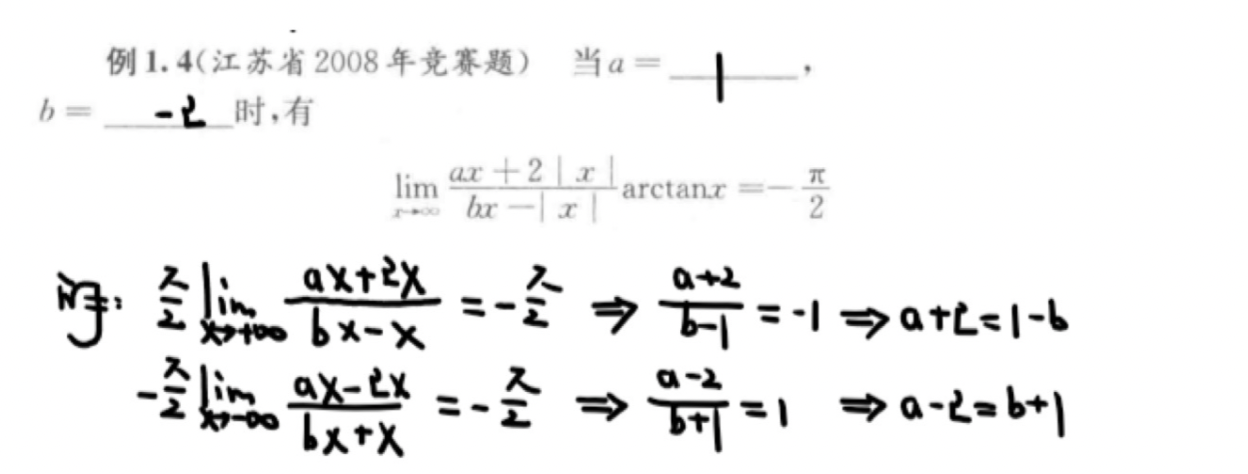 例1.4(江苏省2008年竞赛题) 当a = 1,
b = -2 时,有
lim x→∞ (ax + 2|x|)/(bx - |x|) arctanx = -π/2
解: π/2 lim x→+∞ (ax+2x)/(bx-x) = -π/2 ⇒ (a+2)/(b-1) = -1 ⇒ a+2=1-b
-π/2 lim x→-∞ (ax-2x)/(bx+x) = -π/2 ⇒ (a-2)/(b+1) = 1 ⇒ a-2=b+1